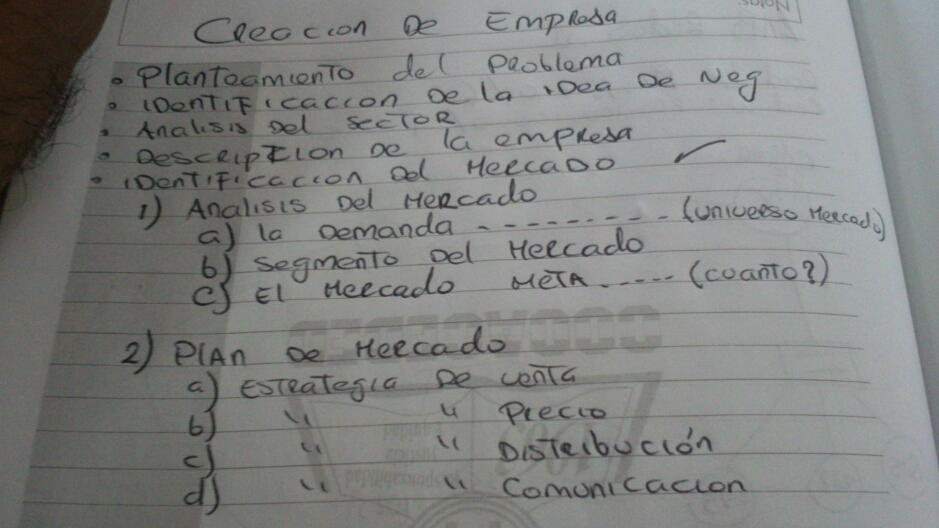 Creacion De Empresa
• Planteamiento del Problema
• iDentificaccion De la iDea De Neg
• Analisis Del Sector
• Descripcion De la empresa
• iDentificacion Del Mercado ✓
1) Analisis Del Mercado
a) la Demanda - - - - - - - - (Universo Mercado)
b) Segmento Del Mercado
c) El Mercado Meta - - - - - (cuanto?)
2) Plan De Mercado
a) Estrategia De venta
b) " " Precio
c) " " Distribución
d) " " Comunicacion